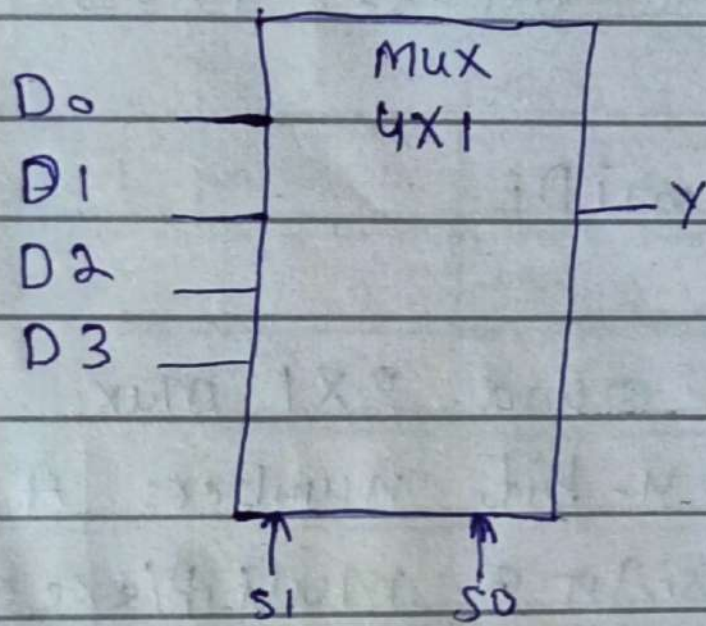 MUX
4X1
D0
D1
Y
D2
D3
S1 S0